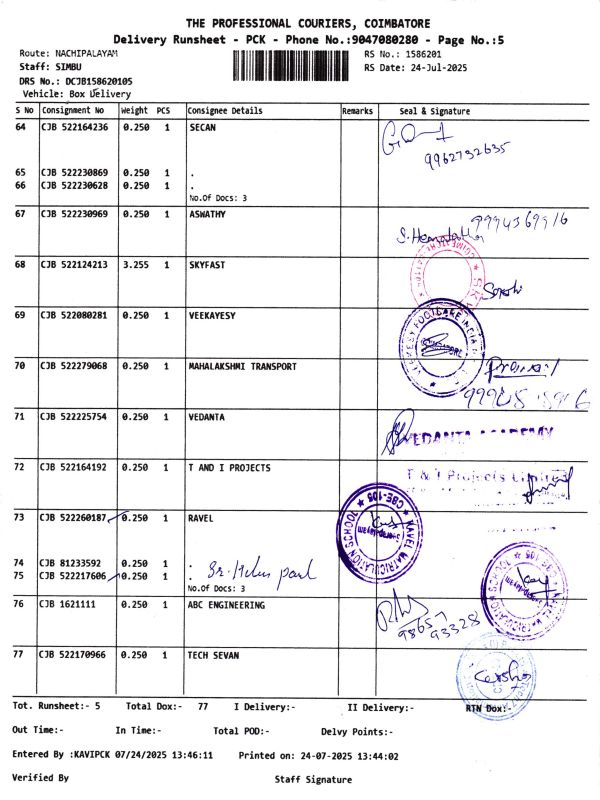 THE PROFESSIONAL COURIERS, COIMBATORE
Delivery Runsheet - PCK - Phone No.:9047080280 - Page No.:5
Route: NACHIPALAYAM
RS No.: 1586201
Staff: SIMBU
RS Date: 24-Jul-2025
DRS No.: DCJB158620105
Vehicle: Box Delivery
S No Consignment No Weight PCS Consignee Details Remarks Seal & Signature
64 CJB 522164236 0.250 1 SECAN
9962732635
65 CJB 522230869 0.250 1 .
66 CJB 522230628 0.250 1 .
No.Of Docs: 3
67 CJB 522230969 0.250 1 ASWATHY
9994369916
S. Hemalatha
68 CJB 522124213 3.255 1 SKYFAST
69 CJB 522080281 0.250 1 VEEKAYESY
70 CJB 522279068 0.250 1 MAHALAKSHMI TRANSPORT
71 CJB 522225754 0.250 1 VEDANTA
VEDANTA ACADEMY
72 CJB 522164192 0.250 1 T AND I PROJECTS
T & I Projects Limited
73 CJB 522260187 0.250 1 RAVEL
RAVEL MATRICULATION SCHOOL
CBE-105
74 CJB 81233592 0.250 1 .
75 CJB 522217606 0.250 1 .
No.Of Docs: 3
76 CJB 1621111 0.250 1 ABC ENGINEERING
98657
93328
77 CJB 522170966 0.250 1 TECH SEVAN
Tot. Runsheet:- 5 Total Dox:- 77 I Delivery:- II Delivery:- RTN Dox:-
Out Time:- In Time:- Total POD:- Delvy Points:-
Entered By :KAVIPCK 07/24/2025 13:46:11 Printed on: 24-07-2025 13:44:02
Verified By Staff Signature